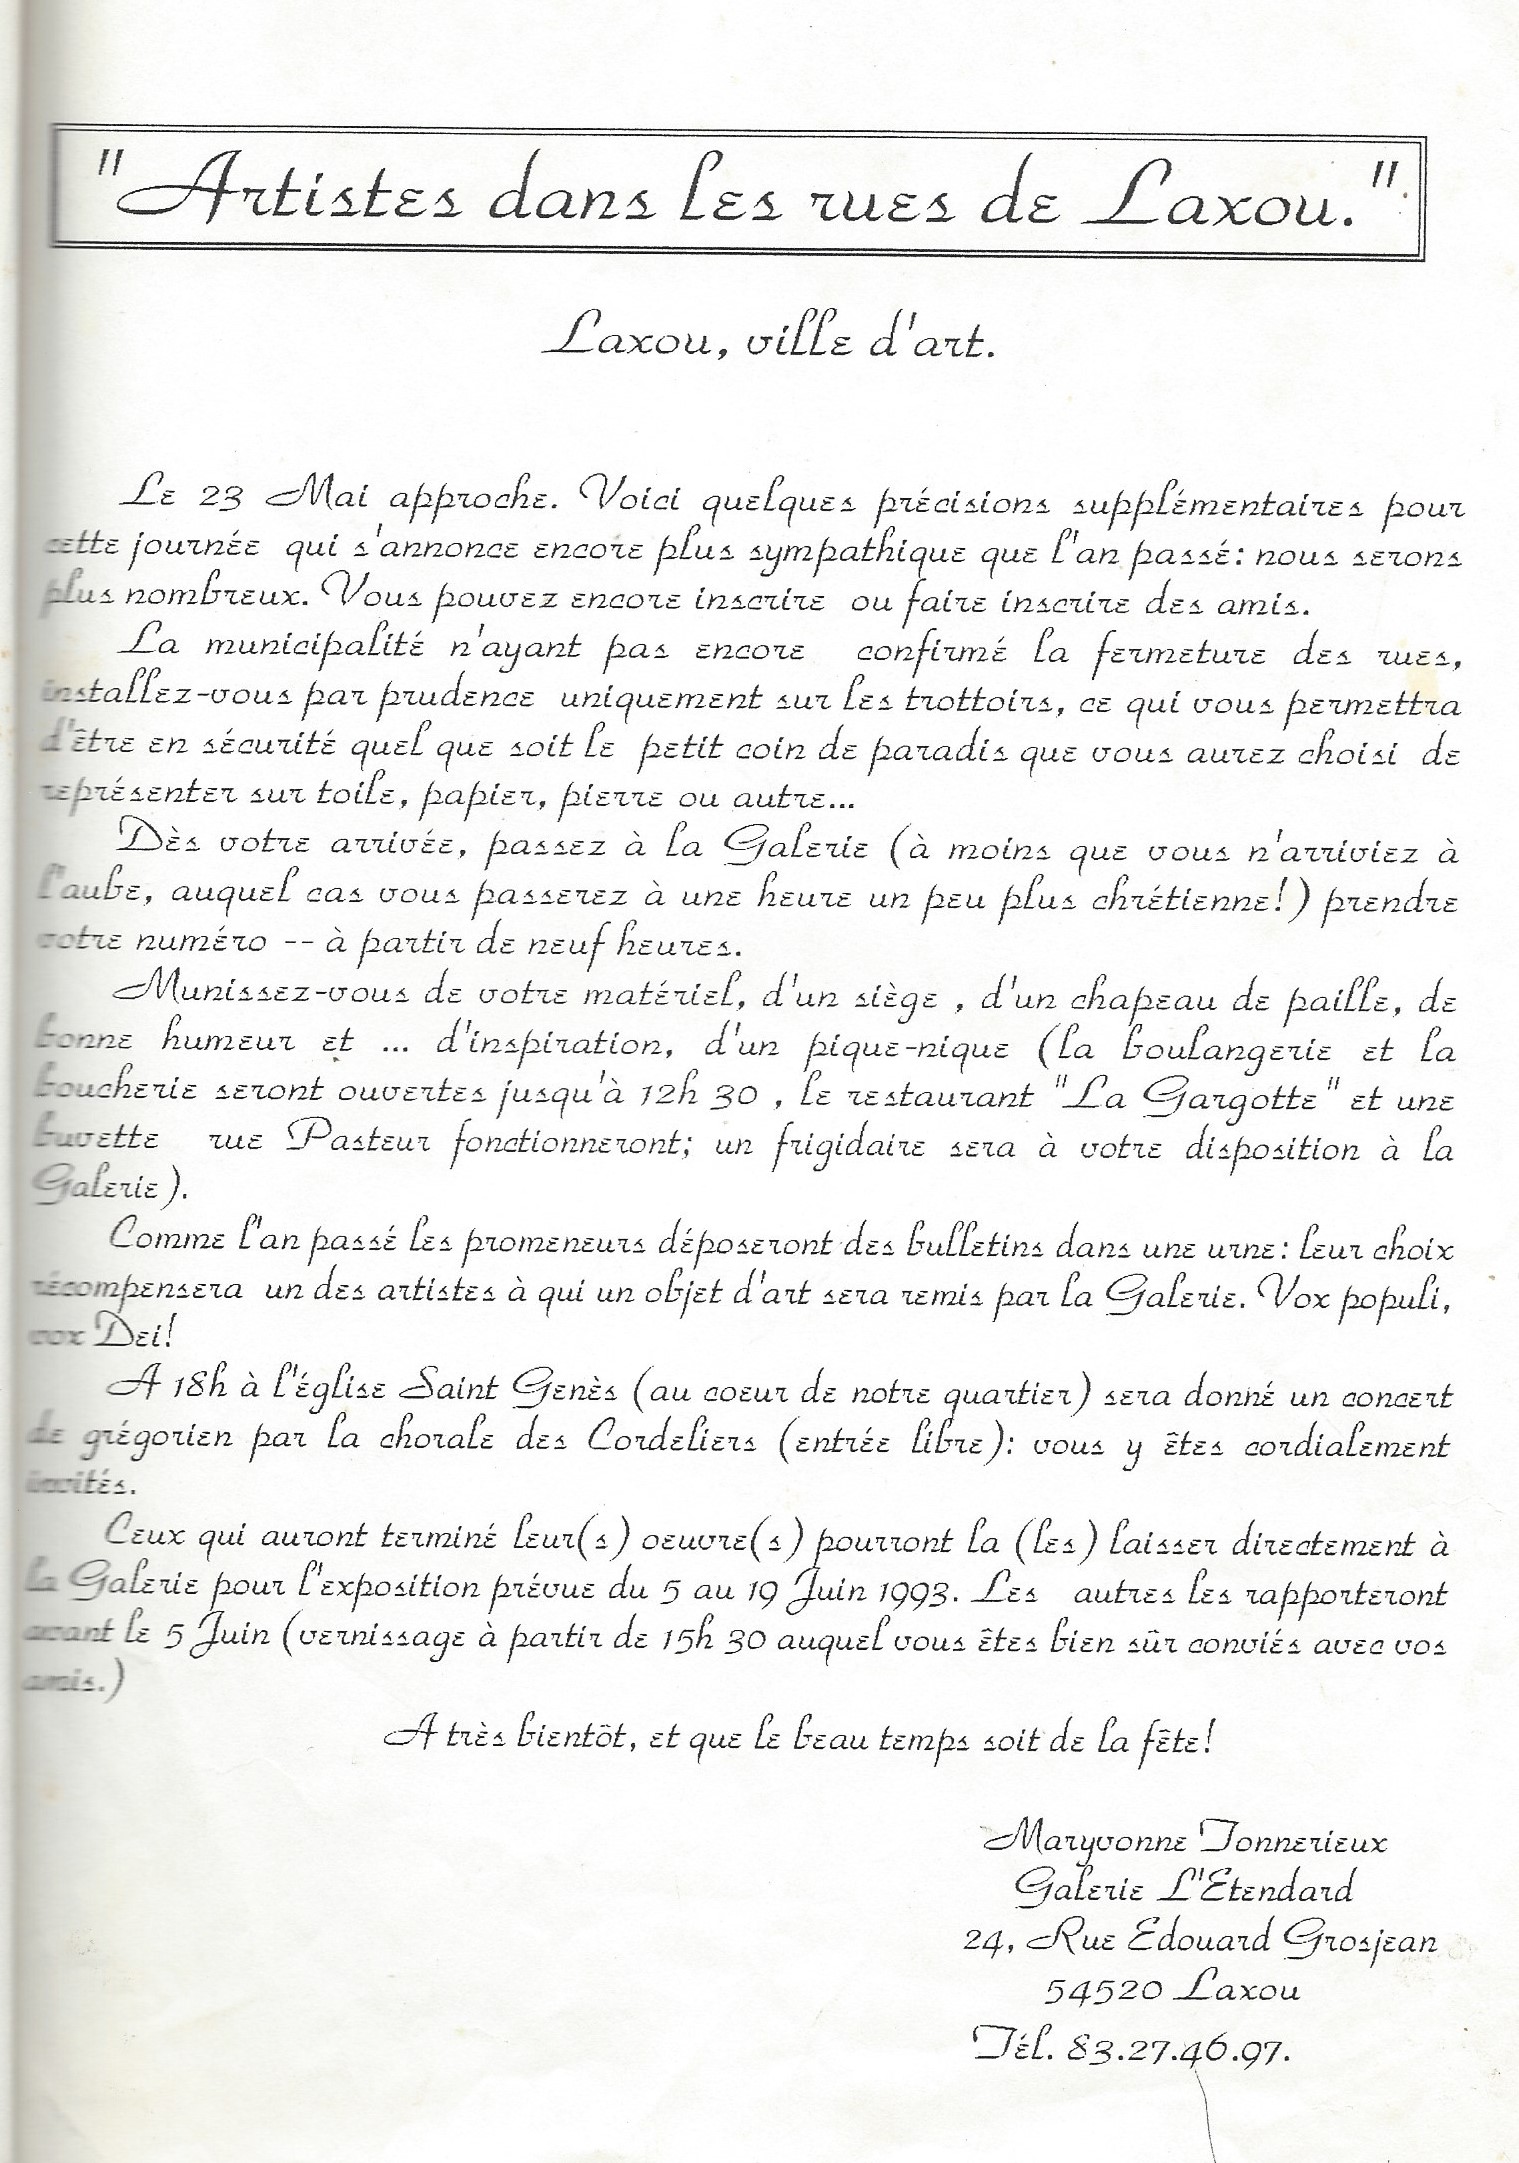 "Artistes dans les rues de Laxou."
Laxou, ville d'art.
Le 23 Mai approche. Voici quelques précisions supplémentaires pour
cette journée qui s'annonce encore plus sympathique que l'an passé: nous serons
plus nombreux. Vous pouvez encore inscrire ou faire inscrire des amis.
La municipalité n'ayant pas encore confirmé la fermeture des rues,
installez-vous par prudence uniquement sur les trottoirs, ce qui vous permettra
d'être en sécurité quel que soit le petit coin de paradis que vous aurez choisi de
représenter sur toile, papier, pierre ou autre...
Dès votre arrivée, passez à la Galerie (à moins que vous n'arriviez à
l'aube, auquel cas vous passerez à une heure un peu plus chrétienne!) prendre
votre numéro -- à partir de neuf heures.
Munissez-vous de votre matériel, d'un siège , d'un chapeau de paille, de
bonne humeur et ... d'inspiration, d'un pique-nique (la boulangerie et la
boucherie seront ouvertes jusqu'à 12h 30 , le restaurant "La Gargotte" et une
buvette rue Pasteur fonctionneront; un frigidaire sera à votre disposition à la
Galerie).
Comme l'an passé les promeneurs déposeront des bulletins dans une urne: leur choix
récompensera un des artistes à qui un objet d'art sera remis par la Galerie. Vox populi,
vox Dei!
A 18h à l'église Saint Genès (au coeur de notre quartier) sera donné un concert
de grégorien par la chorale des Cordeliers (entrée libre): vous y êtes cordialement
invités.
Ceux qui auront terminé leur(s) oeuvre(s) pourront la (les) laisser directement à
la Galerie pour l'exposition prévue du 5 au 19 Juin 1993. Les autres les rapporteront
avant le 5 Juin (vernissage à partir de 15h 30 auquel vous êtes bien sûr conviés avec vos
amis.)
A très bientôt, et que le beau temps soit de la fête!
Maryvonne Tonnerieux
Galerie L'Etendard
24, Rue Edouard Grosjean
54520 Laxou
Tél. 83.27.46.97.